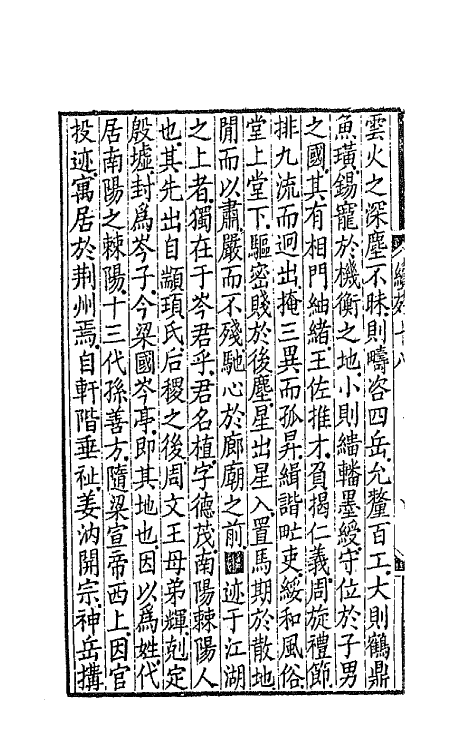 雲火之深塵不昧則疇咨四岳允釐百工大則鶴鼎
魚璜錫寵於機衡之地小則轓墨綬守位於子男
之國其有相門紬緒王佐推才負揭仁義周旋禮節
排九流而迥出掩三異而孤昇緝諧甿吏綏和風俗
堂上堂下驅密賤於後塵星出星入置馬期於散地
閒而以肅嚴而不殘馳心於廊廟之前迹于江湖
之上者獨在于岑君乎君名植字德茂南陽棘陽人
也其先出自顓頊氏后稷之後周文王母弟輝剋定
殷墟封爲岑子今梁國岑亭即其地也因以爲姓代
居南陽之棘陽十三代孫善方隨梁宣帝西上因官
投迹寓居於荆州焉自軒階垂祉姜汭開宗神岳搆